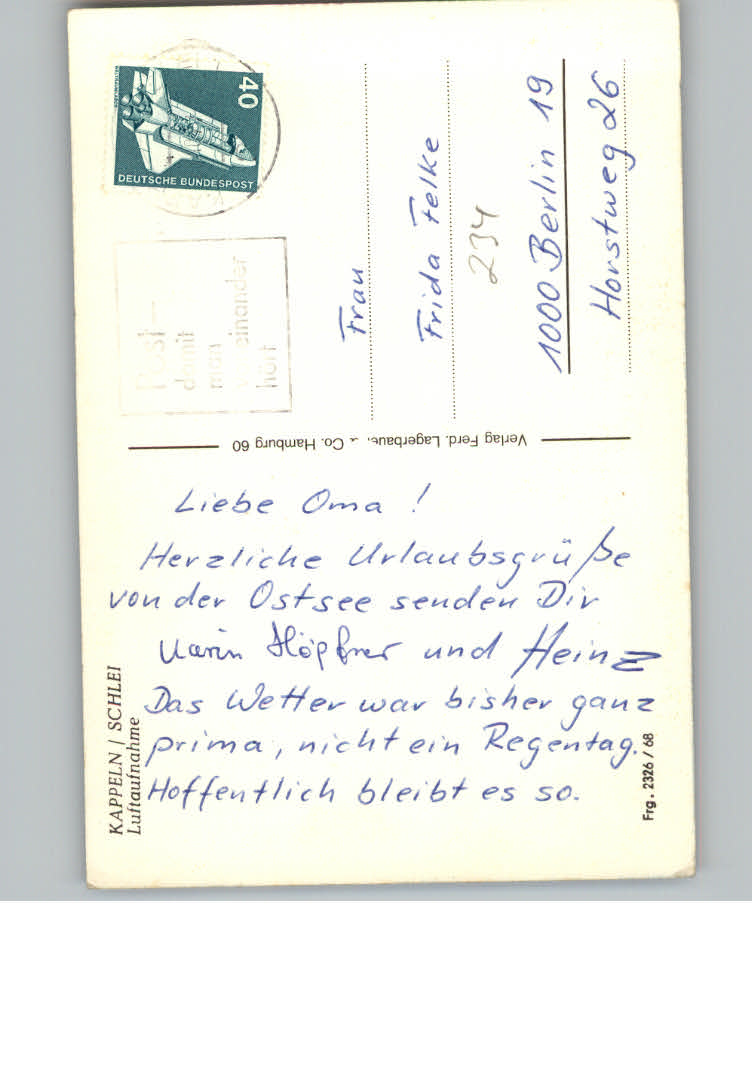 40
DEUTSCHE BUNDESPOST
Post
damit
man
einander
hört
Frau
Frida Felke
234
1000 Berlin 19
Horstweg 26
Verlag Ferd. Co. Hamburg 60
Liebe Oma !
Herzliche Urlaubsgrüße
von der Ostsee senden Dir
Karin Höpfner und Heinz
Das Wetter war bisher ganz
prima, nicht ein Regentag.
Hoffentlich bleibt es so.
KAPPELN / SCHLEI
Luftaufnahme
Frg. 2326 / 68